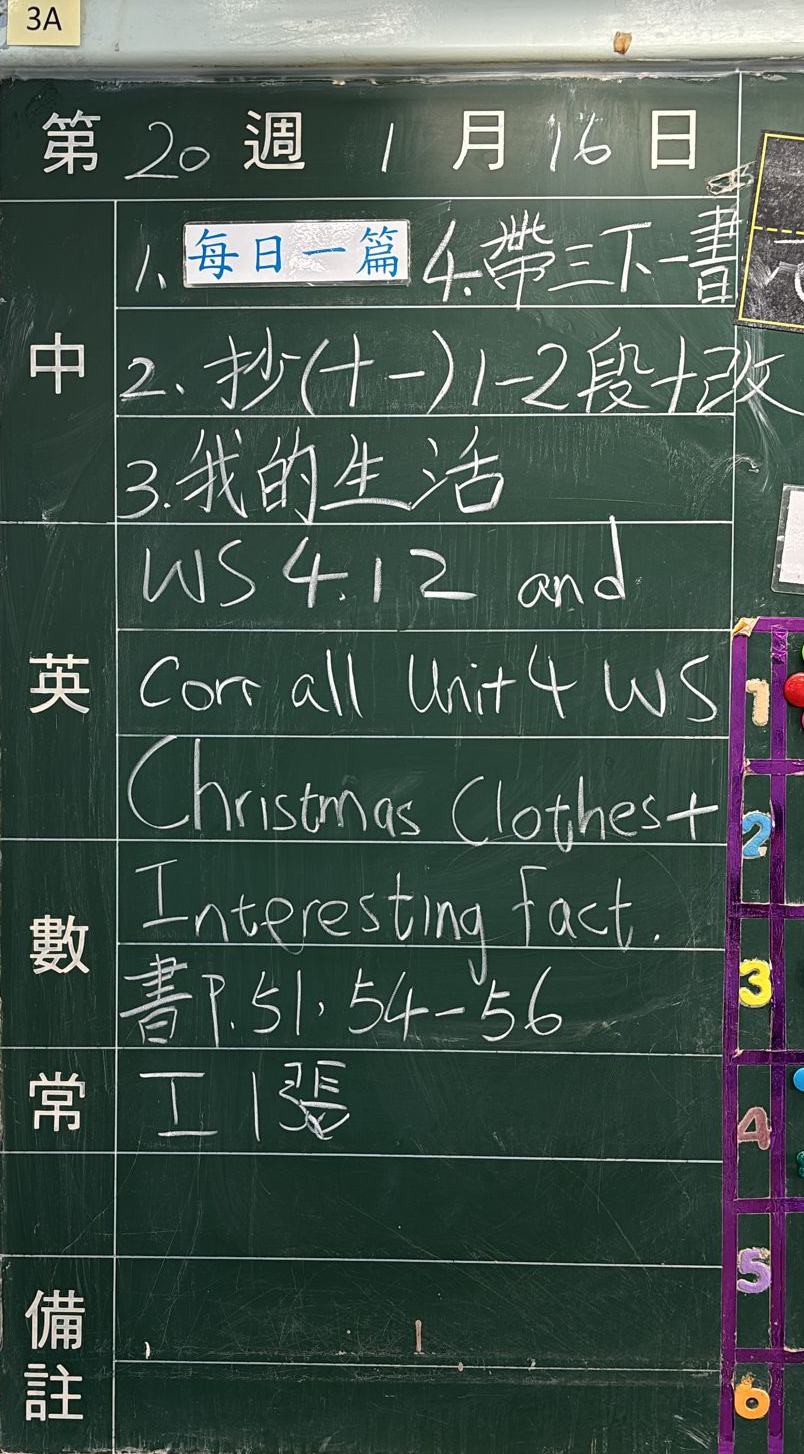 3A
第 20 週 1 月 16 日
中
1. 每日一篇 4. 帶三下一書
2. 抄(十一)1-2段+改
3. 我的生活
英
WS 4.12 and
Corr all Unit 4 WS
Christmas Clothes+
數
Interesting Fact.
書P.51, 54-56
常
工 1張
備註
1
2
3
4
5
6